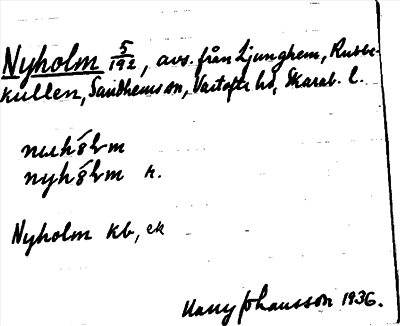 Nyholm 5/192, avs. från Ljunghem, Rubbe-
kullen, Sandhems sn, Vartofta hd, Skarab. l.
nyhólm n.
Nyholm kb, ek
Harry Johansson 1936.